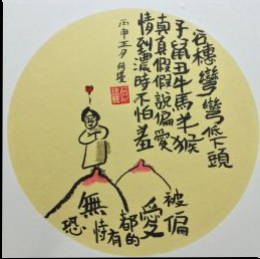 谷穗彎彎低下頭
子鼠丑牛馬羊猴
真真假假說偏愛
情到濃時不怕羞
丙申工夕
被偏
愛
都的
有
恃
無
恐